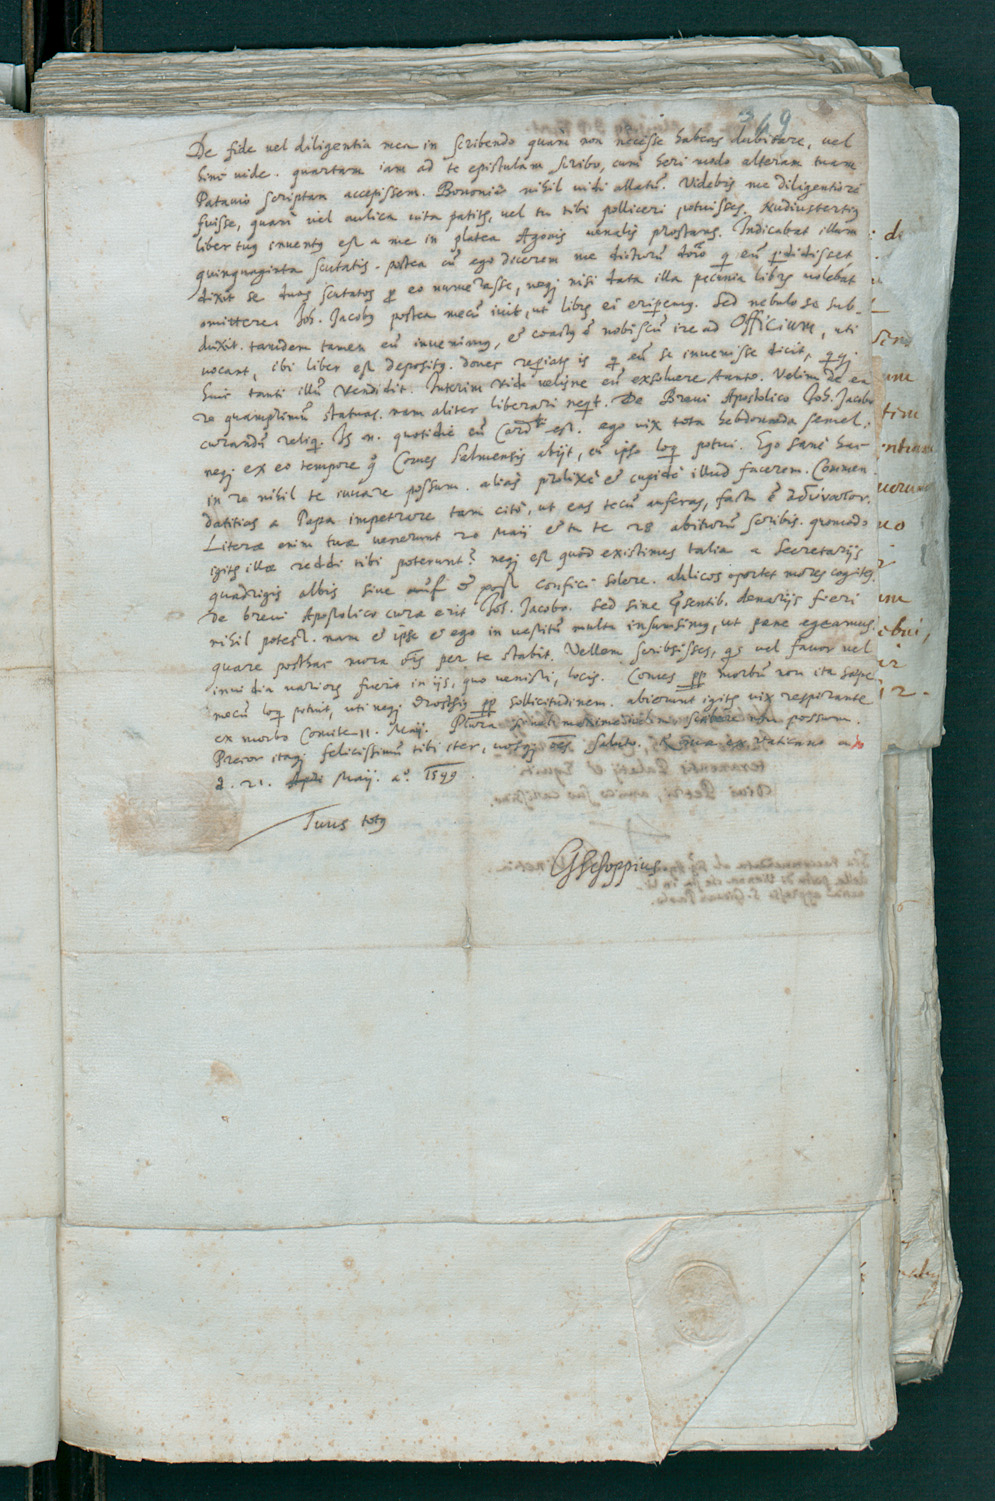 369
De fide vel diligentia mea in scribendo quam non necesse habeas dubitare, vel
hinc vide. quartam iam ad te epistulam scribo, cum heri modo alteram tuam
Patavio scriptam accepissem. Bononiâ nihil mihi allatū. Videbis me diligentiorē
fuisse, quam vel aulica vita patitr, vel tu tibi polliceri potuisses. Nudiustertiꝰ
liber tuꝰ inventꝰ est a me in platea Agonis venalis prostans. Indicabat illum
quinquaginta scutatis. postea cū ego dicerem me dicturū dño q eū perdidisset,
dixit se duos scutatos p eo numerasse, neqꝫ nisi data illa pecunia librū volebat
omittere. Joh. Jacobꝰ postea mecū ivit, ut librū ei eriperemꝰ. Sed nebulo se sub-
duxit. tandem tamen eū invenimꝰ, et coactꝰ ē nobiscū ire ad Officium, uti
vocant, ibi liber est depositꝰ. donec reperiatr is q eū se invenisse dicit, qqꝫ
huic tanti illū vendidit. Interim vide velisne eū exsolvere tanto. Velim de ea
re quamprimū statuas. nam aliter liberari neqt. De Brevi Apostolico Joh. Jacobo
curandū reliq. Is n. quotidie cū Cardli est. ego vix tota hebdomada semel,
neqꝫ ex eo tempore q Comes Salmensis abijt, cū ipso loq potui. Ego sane hac
in re nihil te iuvare possum. alias prolixe et cupide illud facerem. Commen
datitias a Papa impetrare tam cito, ut eas tecū auferas, factu ē ἀδύνατον.
Literæ enim tuæ venerunt 20 Maij et tu te 28 abiturū scribis. quomodo
igitr illæ reddi tibi poterunt? neqꝫ est quod existimes talia a Secretarijs
quadrigis albis sine confici solere. aulicos oportet mores cogites.
De brevi Apostolico curæ erit Joh. Jacobo. Sed sine pnsentib. denarijs fieri
nihil potest. nam et ipse et ego in vestitū multa insumsimꝰ, ut pene egeamus.
quare posthac mora oīs per te stabit. Vellem scribsisses, qs vel favor vel
invidia variors fuerit in ijs, quo venisti, locis. Comes pp morbū non ita sæpe
mecū loq potuit, uti neqꝫ Drostiꝰ pp sollicitudinem. abierunt igitr vix respirante
ex morbo Comite 11. Maij. Plura scribere non possum.
Precor itaqꝫ felicissimū tibi iter, vosqꝫ oēs saluto. Vaticano
d. 21. Maij. aº. 1599.
Tuus totꝰ
GSchoppius